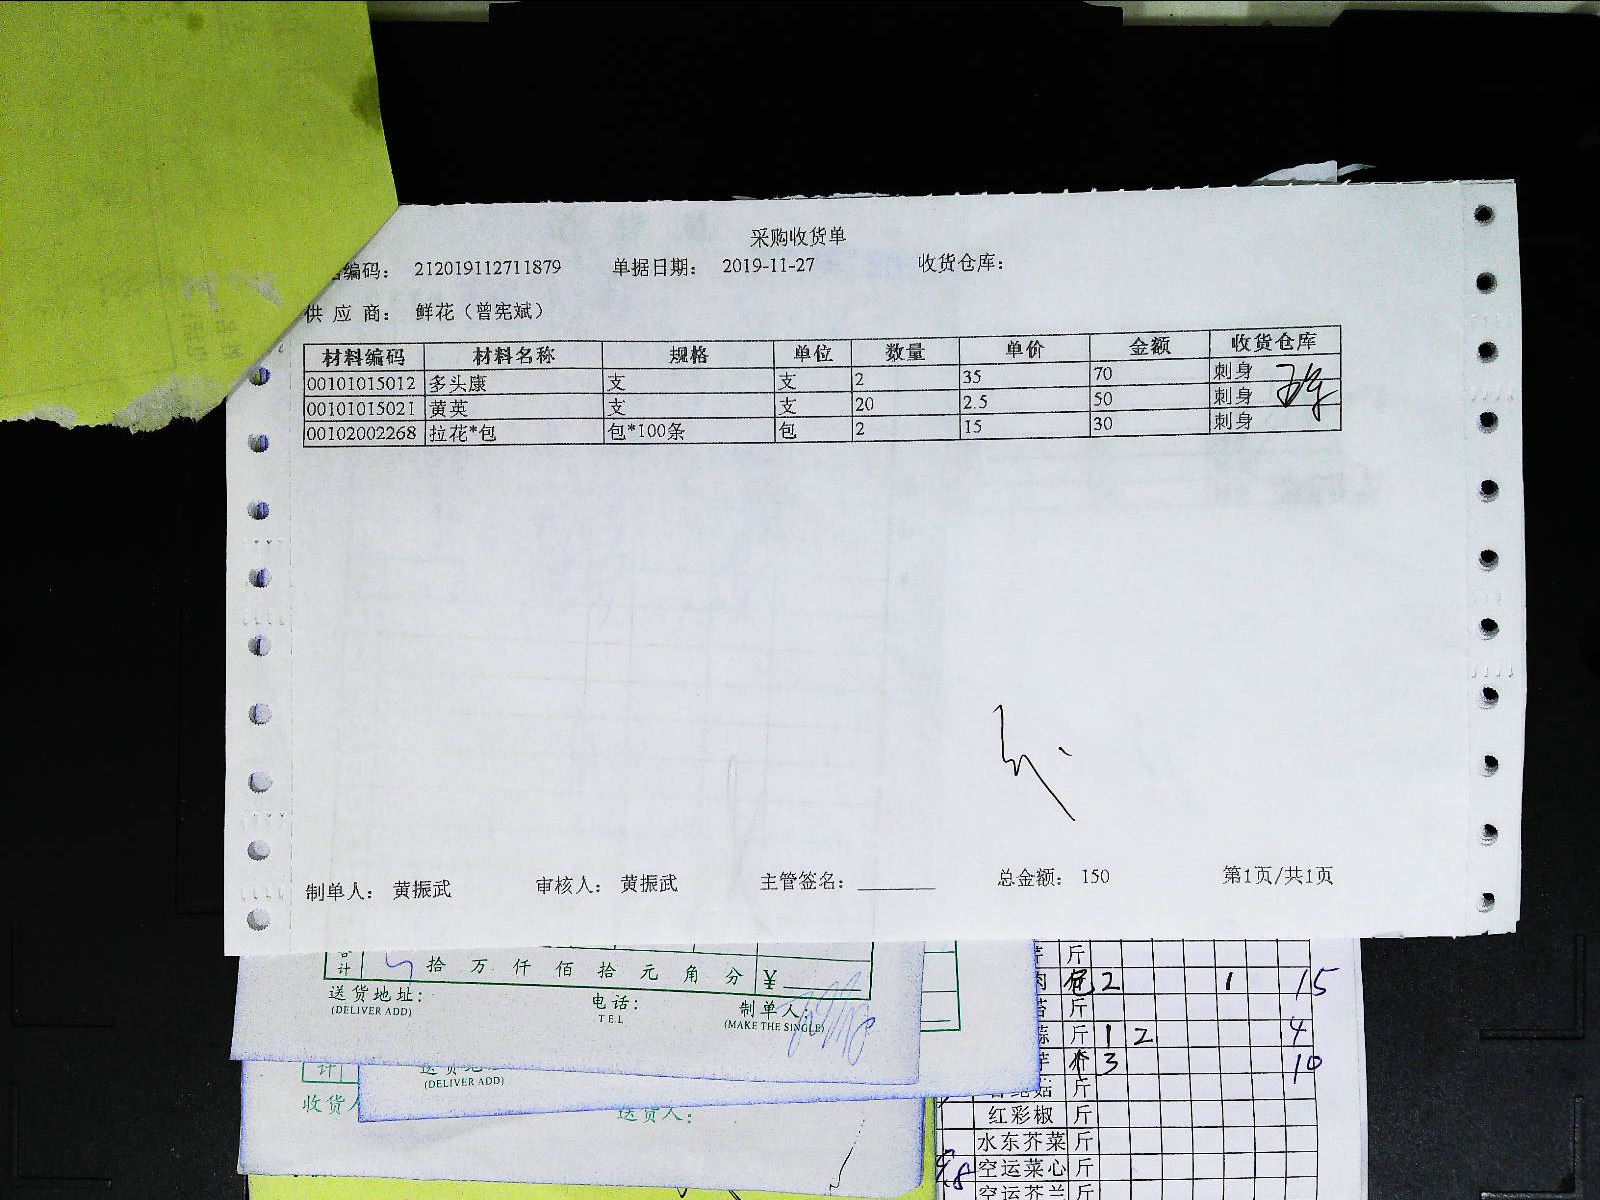 采购收货单
编码： 212019112711879 单据日期： 2019-11-27 收货仓库：
供 应 商： 鲜花（曾宪斌）
材料编码 材料名称 规格 单位 数量 单价 金额 收货仓库
00101015012 多头康 支 支 2 35 70 刺身
00101015021 黄英 支 支 20 2.5 50 刺身
00102002268 拉花*包 包*100条 包 2 15 30 刺身
制单人： 黄振武 审核人： 黄振武 主管签名： 总金额： 150 第1页/共1页
合计 拾 万 仟 佰 拾 元 角 分 ¥
送货地址： 电话： 制单人：
(DELIVER ADD) TEL (MAKE THE SINGLE)
计
(DELIVER ADD)
收货人 送货人：
斤
肉 包 2 1 15
斤
斤 1 2 4
3 10
菇 斤
红彩椒 斤
水东芥菜 斤
空运菜心 斤
空运芥兰 斤